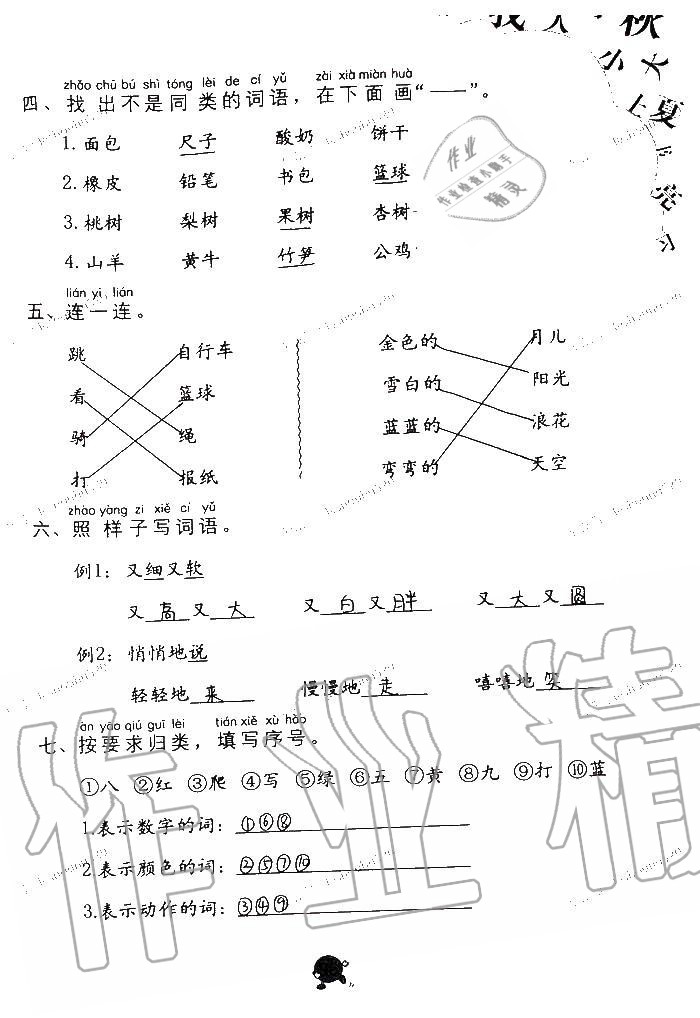 找人·秋
小大
上夏
下
亮
习
zhǎo chū bú shì tóng lèi de cí yǔ zài xià miàn huà
四、找出不是同类的词语，在下面画“——”。
1.面包 尺子 酸奶 饼干
2.橡皮 铅笔 书包 篮球
3.桃树 梨树 果树 杏树
4.山羊 黄牛 竹笋 公鸡
作业
作业检查小助手
精灵
lián yi lián
五、连一连。
跳 自行车 金色的 月儿
看 篮球 雪白的 阳光
骑 绳 蓝蓝的 浪花
打 报纸 弯弯的 天空
zhào yàng zi xiě cí yǔ
六、照样子写词语。
例1：又细又软
又高又大 又白又胖 又大又圆
例2：悄悄地说
轻轻地来 慢慢地走 嘻嘻地笑
àn yāo qiú guī lèi tián xiě xù hào
七、按要求归类，填写序号。
①八 ②红 ③爬 ④写 ⑤绿 ⑥五 ⑦黄 ⑧九 ⑨打 ⑩蓝
1.表示数字的词：①⑥⑧
2.表示颜色的词：②⑤⑦⑩
3.表示动作的词：③④⑨
作业精